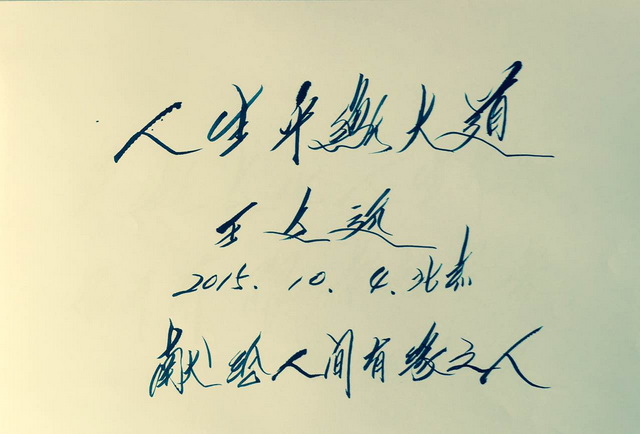 人生平衡大道
王文远
2015.10.4.北京
献给人间有缘之人